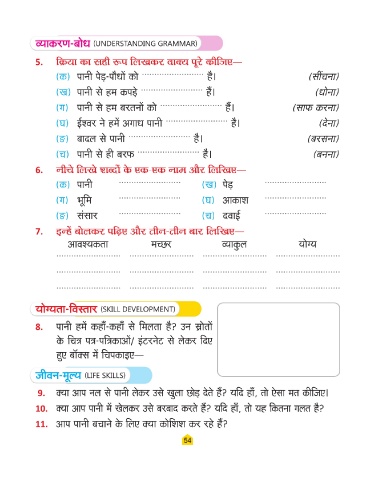 व्याकरण-बोध (UNDERSTANDING GRAMMAR)
5. क्रिया का सही रूप लिखकर वाक्य पूरे कीजिए—
(क) पानी पेड़-पौधों को ........................ है। (सींचना)
(ख) पानी से हम कपड़े ........................ हैं। (धोना)
(ग) पानी से हम बरतनों को ........................ हैं। (साफ करना)
(घ) ईश्वर ने हमें अगाध पानी ........................ है। (देना)
(ङ) बादल से पानी ........................ है। (बरसना)
(च) पानी से ही बरफ ........................ है। (बनना)
6. नीचे लिखे शब्दों के एक-एक नाम और लिखिए—
(क) पानी ........................ (ख) पेड़ ........................
(ग) भूमि ........................ (घ) आकाश ........................
(ङ) संसार ........................ (च) दवाई ........................
7. इन्हें बोलकर पढ़िए और तीन-तीन बार लिखिए—
आवश्यकता मच्छर व्याकुल योग्य
........................ ........................ ........................ ........................
........................ ........................ ........................ ........................
........................ ........................ ........................ ........................
योग्यता-विस्तार (SKILL DEVELOPMENT)
8. पानी हमें कहाँ-कहाँ से मिलता है? उन स्रोतों
के चित्र पत्र-पत्रिकाओं/ इंटरनेट से लेकर दिए
हुए बॉक्स में चिपकाइए—
जीवन-मूल्य (LIFE SKILLS)
9. क्या आप नल से पानी लेकर उसे खुला छोड़ देते हैं? यदि हाँ, तो ऐसा मत कीजिए।
10. क्या आप पानी में खेलकर उसे बरबाद करते हैं? यदि हाँ, तो यह कितना गलत है?
11. आप पानी बचाने के लिए क्या कोशिश कर रहे हैं?
54